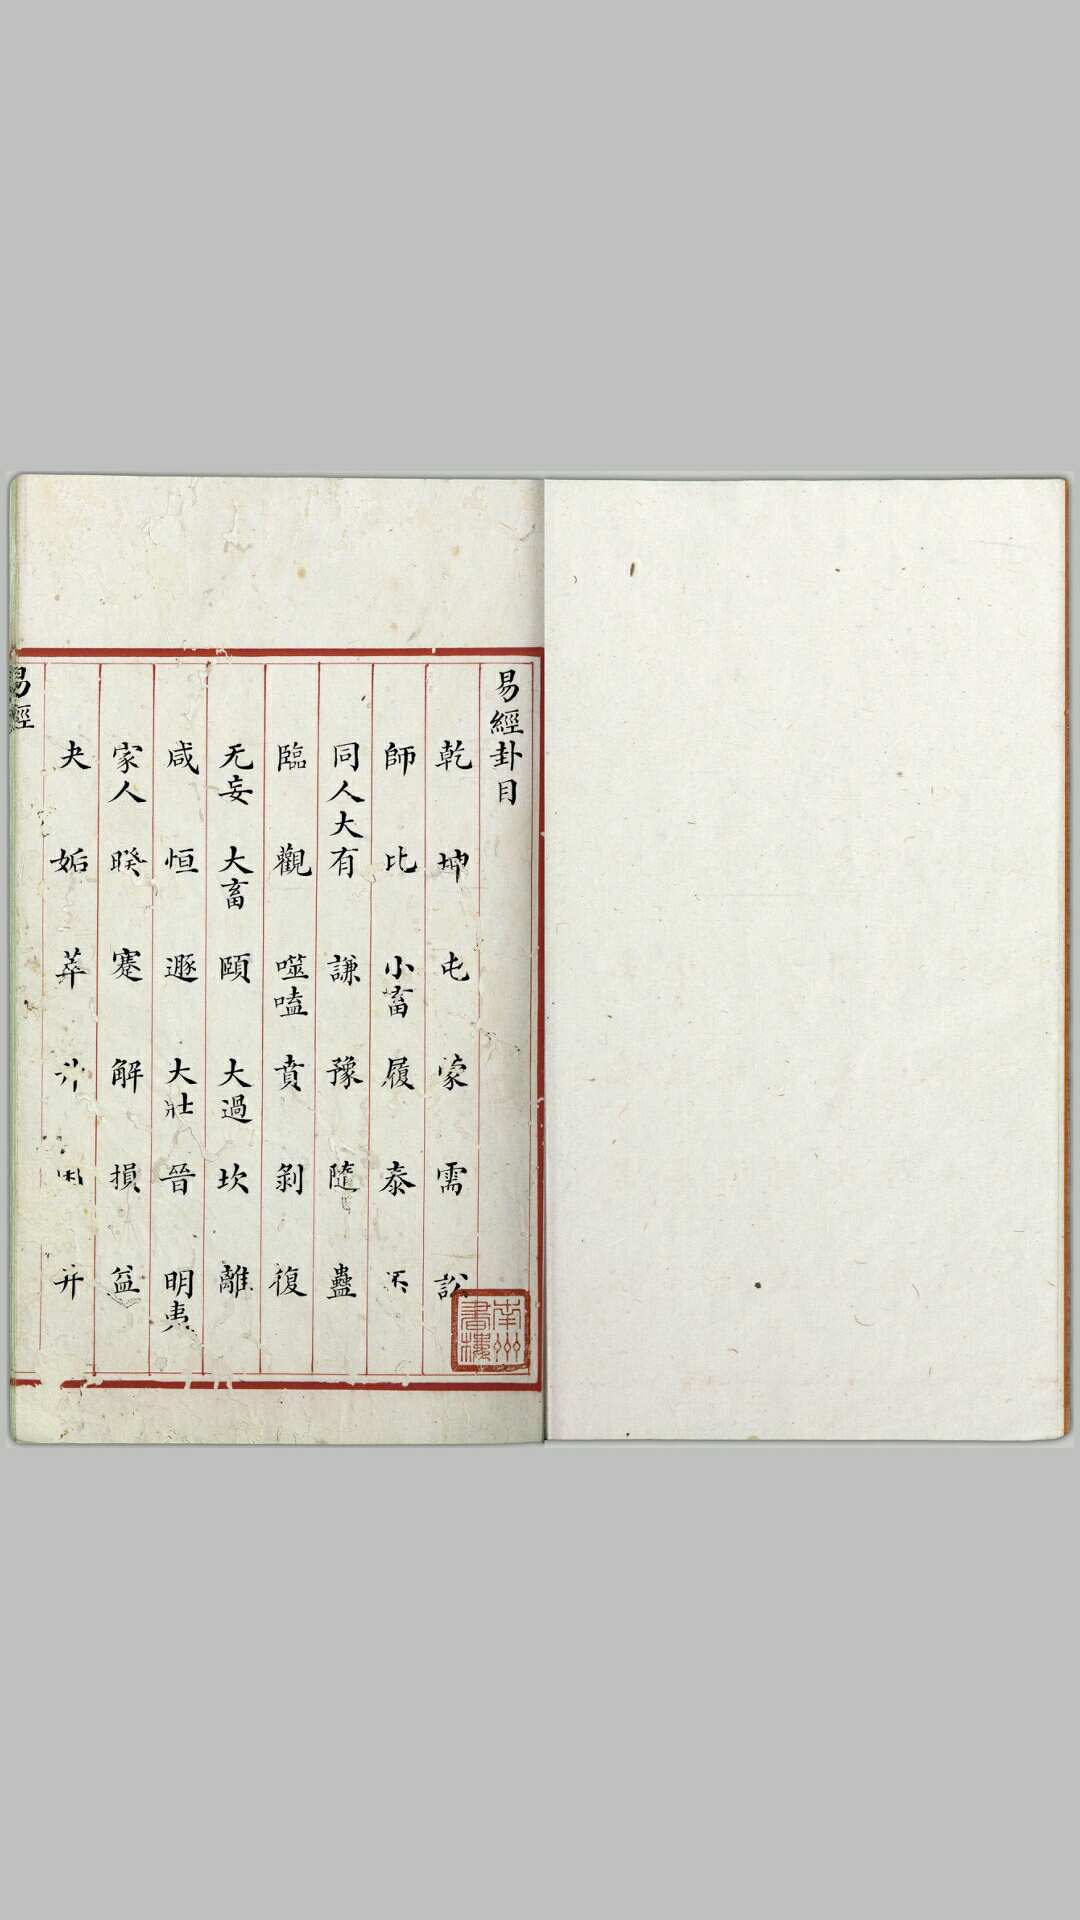 易經卦目
乾 坤 屯 蒙 需 訟
師 比 小畜 履 泰 否
同人 大有 謙 豫 隨 蠱
臨 觀 噬嗑 賁 剝 復
无妄 大畜 頤 大過 坎 離
咸 恒 遯 大壯 晉 明夷
家人 睽 蹇 解 損 益
夬 姤 萃 升 困 井
易經
南州書樓